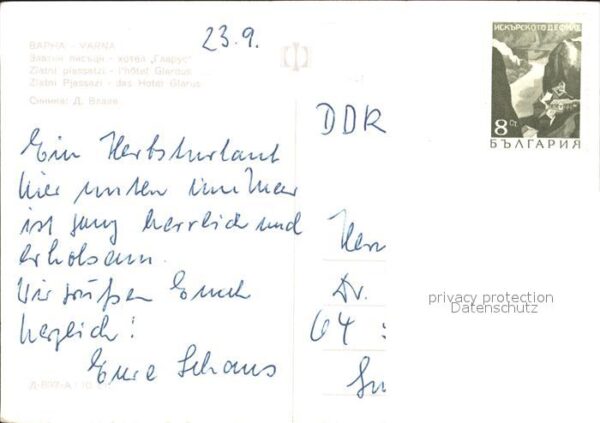 23.9.
ВАРНА - VARNA
Златни пясъци - хотел „Гларус"
Zlatni piassatzi - l'hôtel Glarus
Zlatni Pjassazi - das Hotel Glarus
Снимка: Д. Влаев
ИСКЪРСКОТО ДЕФИЛЕ
8 СТ
БЪЛГАРИЯ
DDR
Ein Herbsturlaub
hier unten am Meer
ist ganz herrlich und
erholsam.
Wir grüßen Euch
herzlich!
Eure Schaus
Herr
Dr.
64
privacy protection
Datenschutz